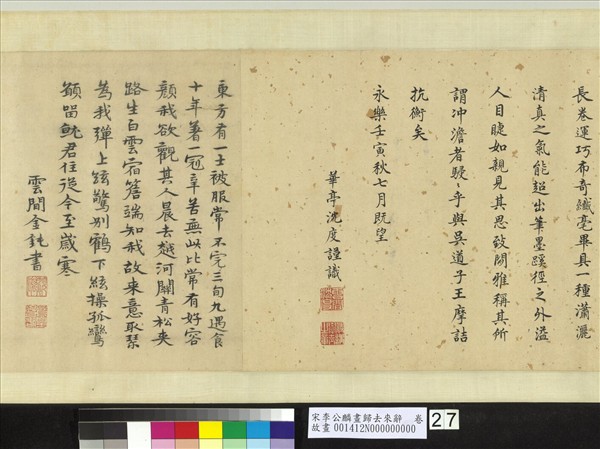 長卷運巧布奇纖毫畢具一種瀟灑
清真之氣能超出筆墨蹊徑之外溢
人目睫如親見其思致閒雅稱其所
謂冲澹者駸〻乎與吳道子王摩詰
抗衡矣
永樂壬寅秋七月既望
華亭沈度謹識
東方有一士被服常不完三旬九遇食
十年著一冠辛苦無此比常有好容
顏我欲觀其人晨去越河關青松夾
路生白雲宿簷端知我故來意取琴
為我彈上絃驚別鶴下絃操孤鸞
願留就君住從今至歲寒
雲間金鈍書
宋李公麟畫歸去來辭 卷
故畫 001412N000000000
27